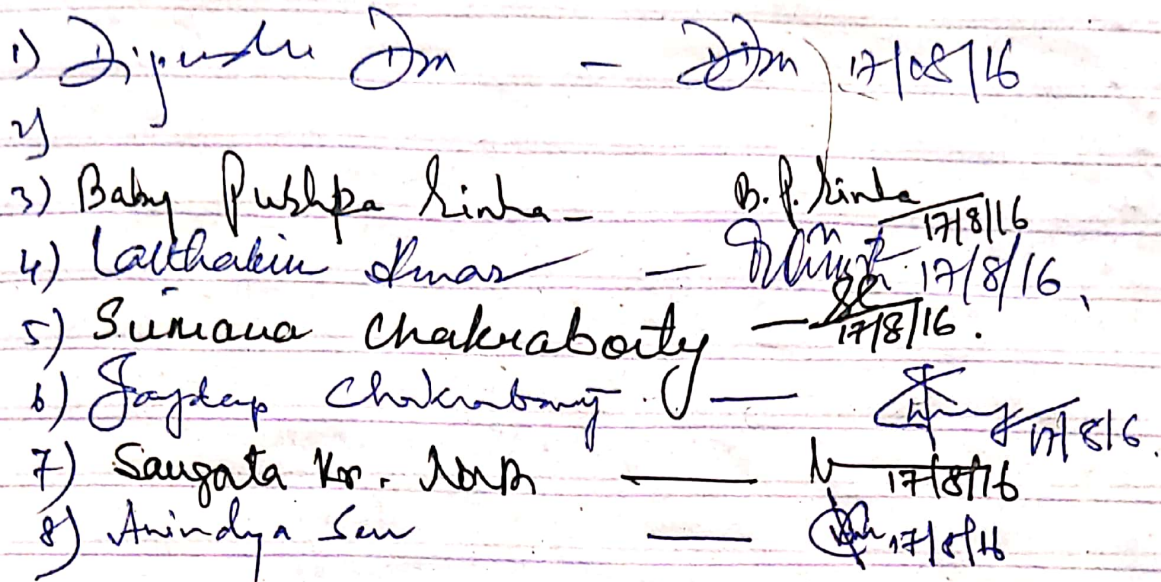 1) Dijendu Das - DDas 17/08/16
2)
3) Baby Pushpa Sinha - B. P. Sinha 17/8/16
4) Lalthakim - 17/8/16
5) Sumana Chakraborty - SC 17/8/16.
6) Jaydeep Chakraborty. - 17/8/16.
7) Saugata Kr. Nath - 17/8/16
8) Anindya Sen - 17/8/16